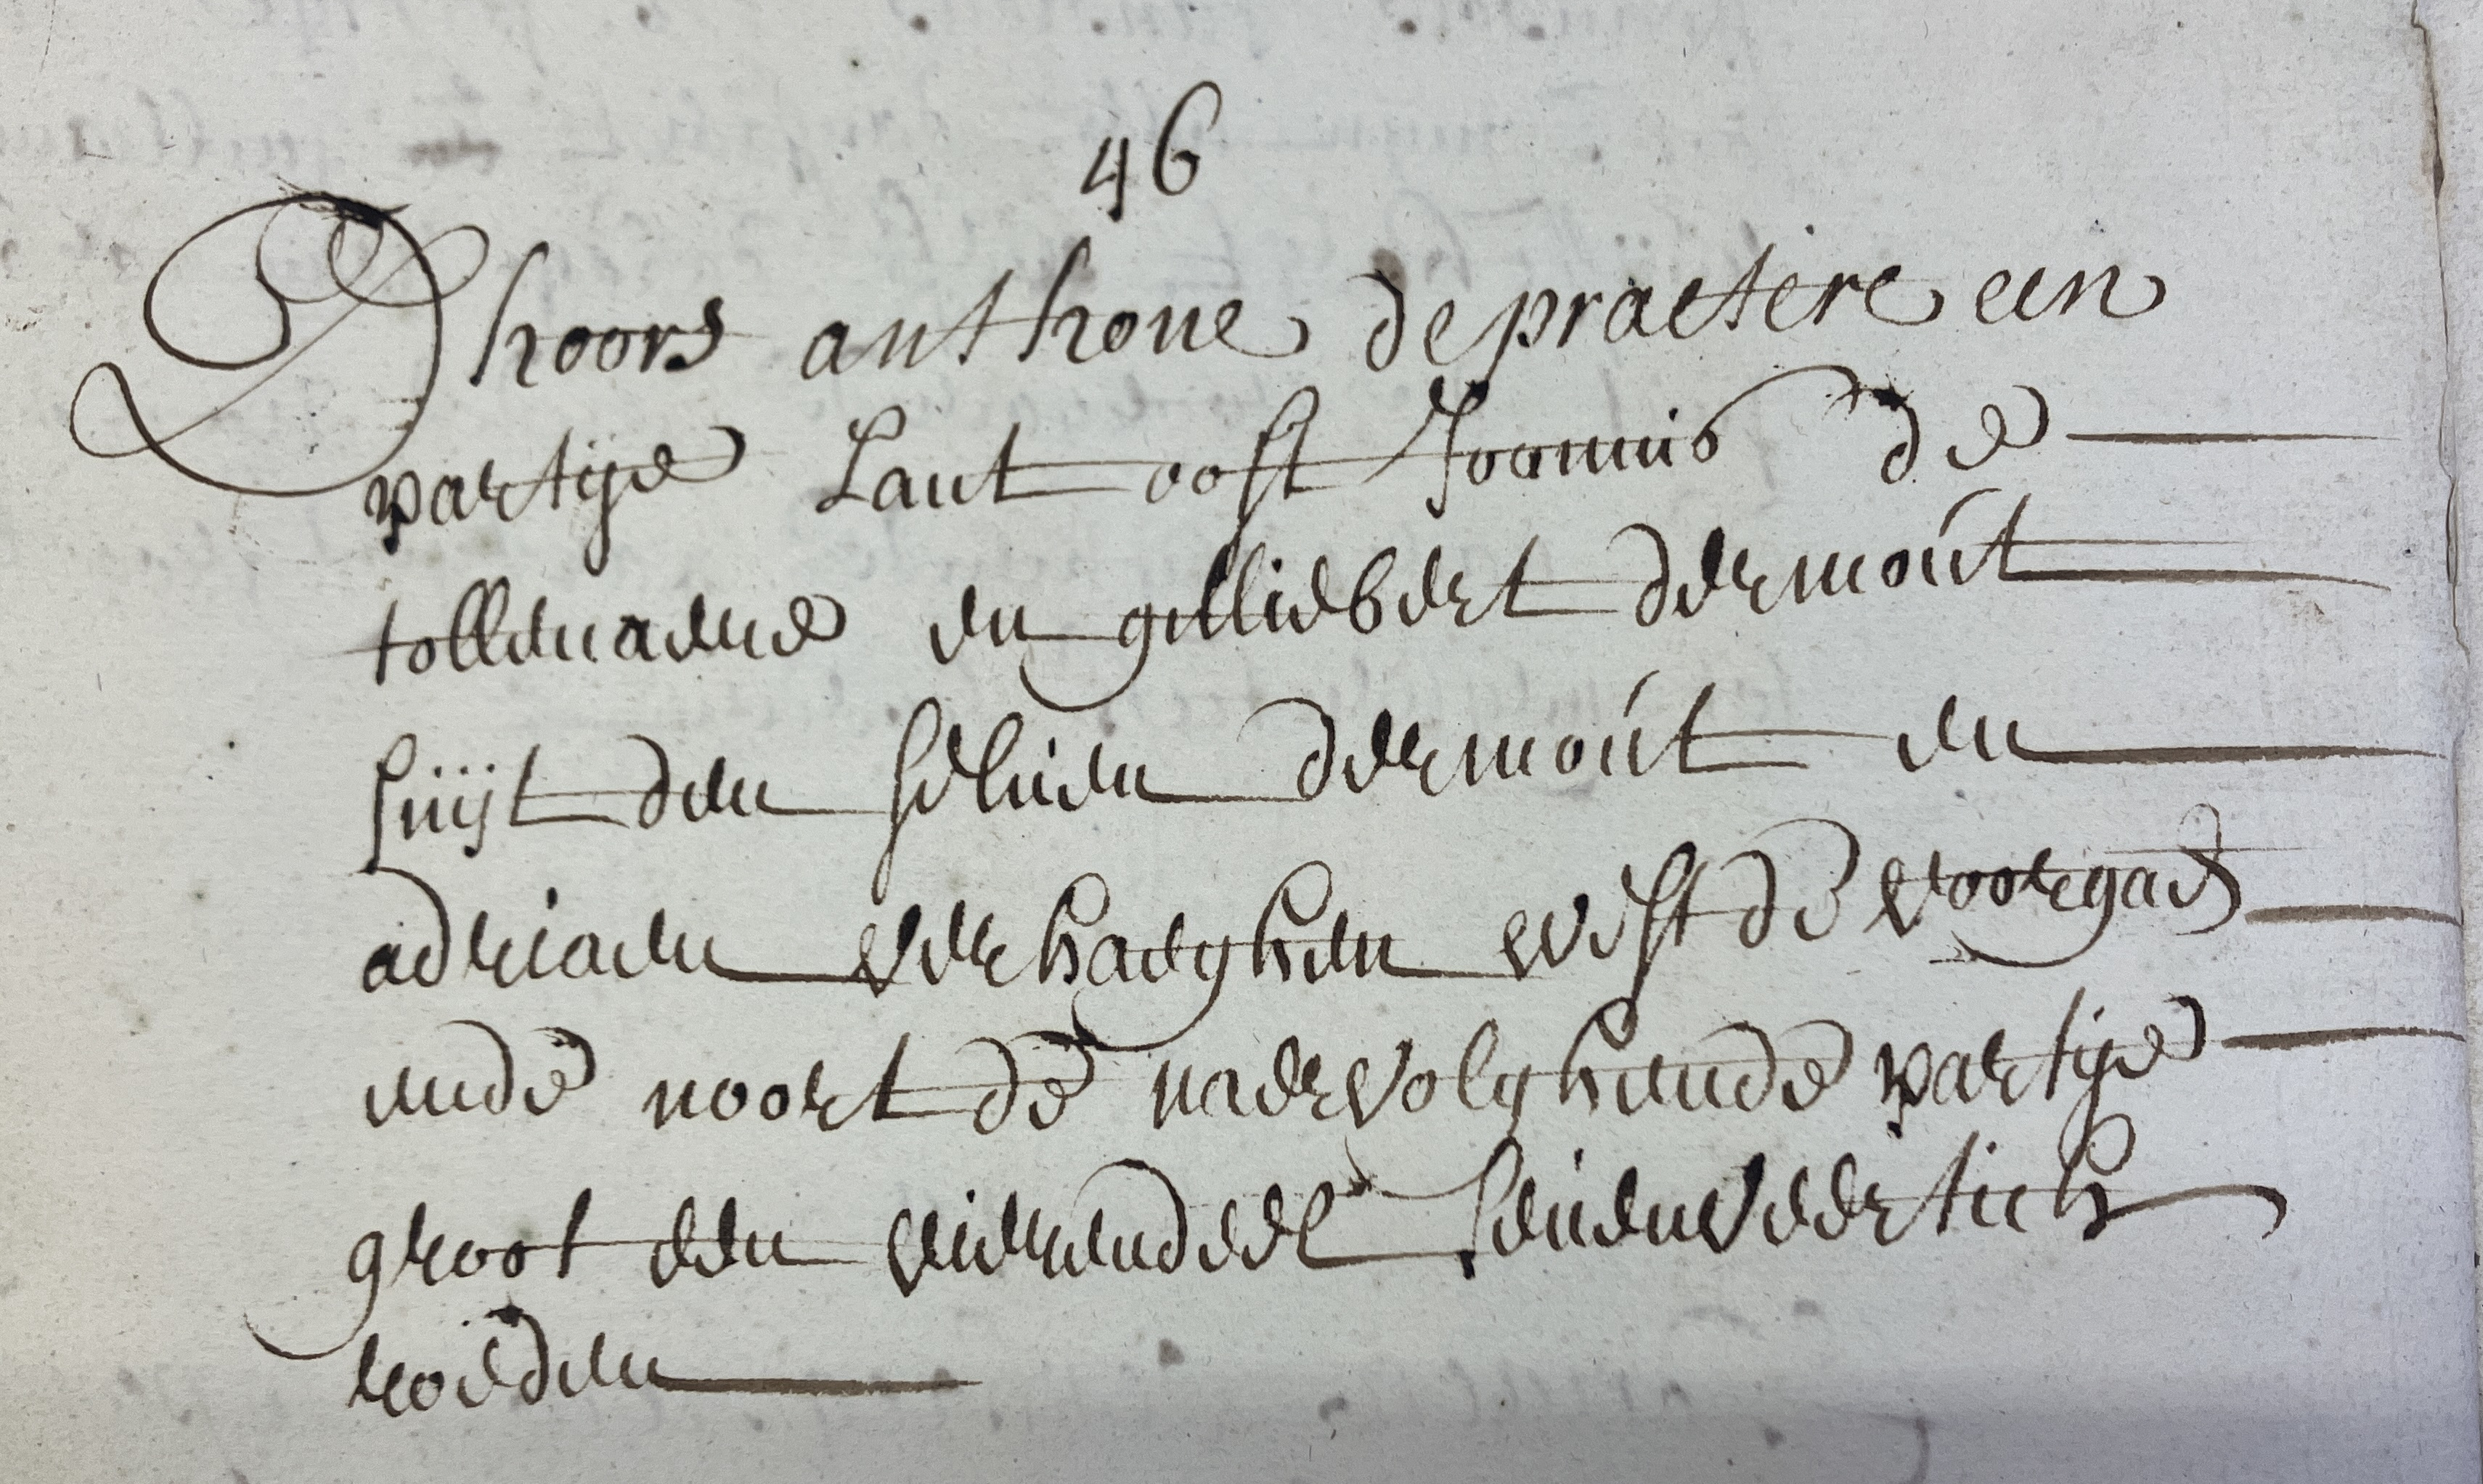 46
Dhoors anthone de praetere een
partije Lant oost Joannis de
tollenaere en gilliebert dermóút
suijt den selven dermóút en
adriaen verhaeghen west de voorgaen
ende noort de naervolghende partije
groot een vierendeel sevenveertich
roeden